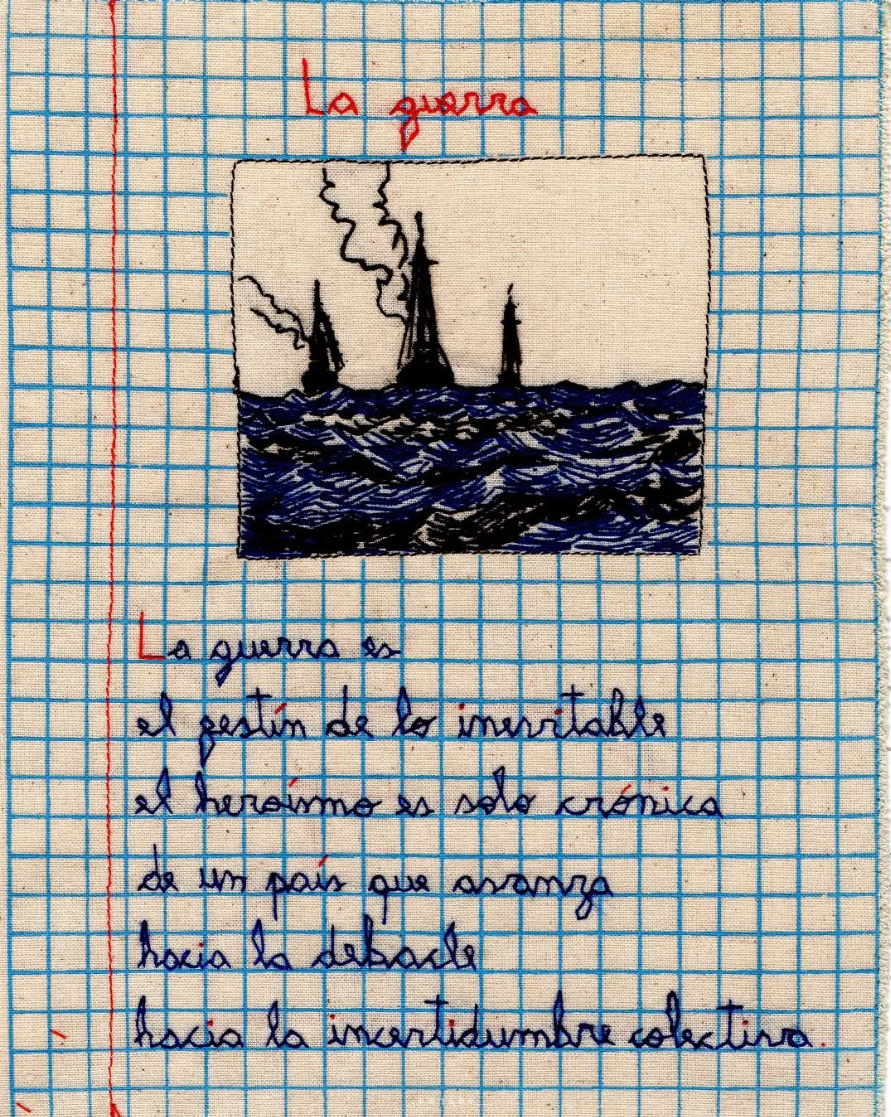 La guerra
La guerra es
el festín de lo inevitable
el heroísmo es solo crónica
de un país que avanza
hacia la debacle
hacia la incertidumbre colectiva.